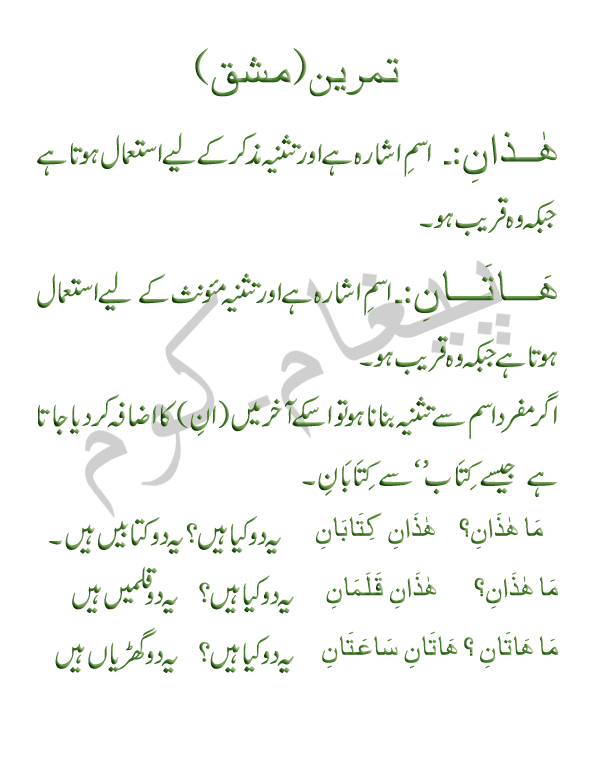 تمرین (مشق)
هٰـــذانِ :۔ اسمِ اشارہ ہے اور تثنیہ مذکر کے لیے استعمال ہوتا ہے
جبکہ وہ قریب ہو۔
هَـــاتَـــانِ :۔ اسمِ اشارہ ہے اور تثنیہ مؤنث کے لیے استعمال
ہوتا ہے جبکہ وہ قریب ہو۔
اگر مفرد اسم سے تثنیہ بنانا ہو تو اسکے آخر میں (انِ) کا اضافہ کر دیا جاتا
ہے جیسے کِتَاب’‘ سے کِتَابَانِ۔
مَا هٰذَانِ؟ هٰذَانِ كِتَابَانِ یہ دو کیا ہیں؟ یہ دو کتابیں ہیں۔
مَا هٰذَانِ؟ هٰذَانِ قَلَمَانِ یہ دو کیا ہیں؟ یہ دو قلمیں ہیں
مَا هَاتَانِ ؟ هَاتَانِ سَاعَتَانِ یہ دو کیا ہیں؟ یہ دو گھڑیاں ہیں
پیغام۔کوم